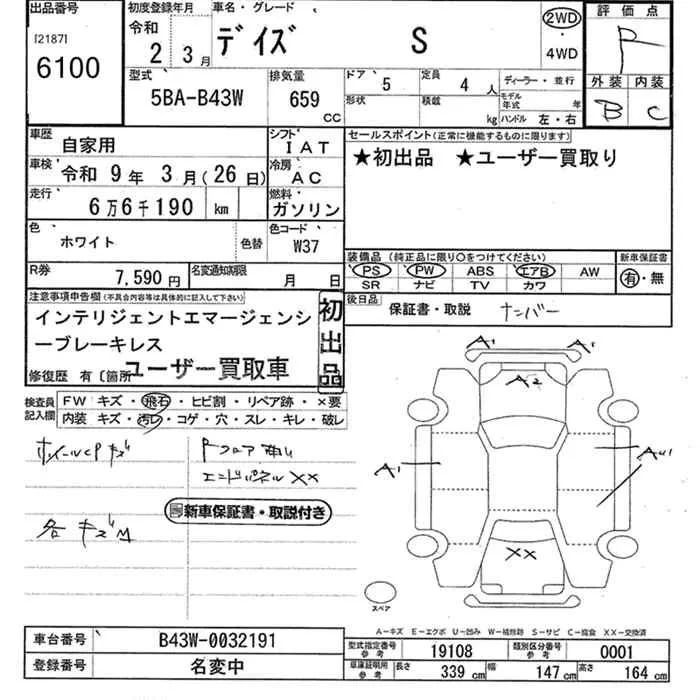 出品番号
[2187]
6100
初度登録年月
令和
2 3月
車名・グレード
デイズ S
2WD
・
4WD
評価点
R
外装 内装
B C
型式
5BA-B43W
排気量
659
CC
ドア
5
定員
4人
形状
積載
kg
ディーラー・並行
モデル年式 年
ハンドル 左・右
車歴
自家用
シフト
IAT
車検
令和 9年 3月(26日)
冷房
AC
走行
6万6千190 km
燃料
ガソリン
色
ホワイト
色替
色コード
W37
R券
7,590円
名変通知期限
月 日
セールスポイント(正常に機能するものに限ります)
★初出品 ★ユーザー買取り
装備品(純正品に限り○をつけてください)
PS PW ABS エアB AW
SR ナビ TV カワ
新車保証書
有・無
後日品
保証書・取説 ナンバー
注意事項申告欄(不具合内容等は具体的に記入して下さい)
インテリジェントエマージェンシ
ーブレーキレス
ユーザー買取車
修復歴 有〔箇所
初出品
検査員
記入欄
FW キズ・飛石・ヒビ割・リペア跡・×要
内装 キズ・汚レ・コゲ・穴・スレ・キレ・破レ
ホイールCPキズ
Rフロア
エンドパネルXX
新車保証書・取説付き
各キズM
A1 A1
A2
A1
XX
スペア
A-キズ E-エクボ U-凹み W-補修跡 S-サビ C-腐食 XX-交換済
車台番号
B43W-0032191
登録番号
名変中
型式指定番号
参考
19108
類別区分番号
参考
0001
車庫証明用
参考
長さ 339cm 幅 147cm 高さ 164cm